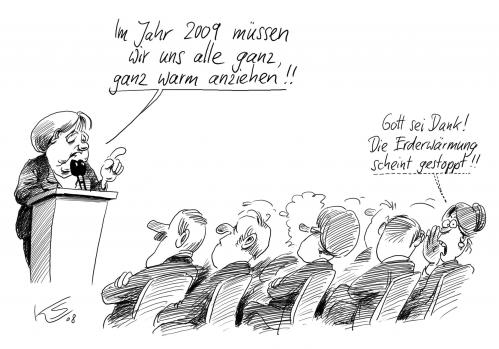 Im Jahr 2009 müssen
wir uns alle ganz,
ganz warm anziehen!!
Gott sei Dank!
Die Erderwärmung
scheint gestoppt!!
KS 08